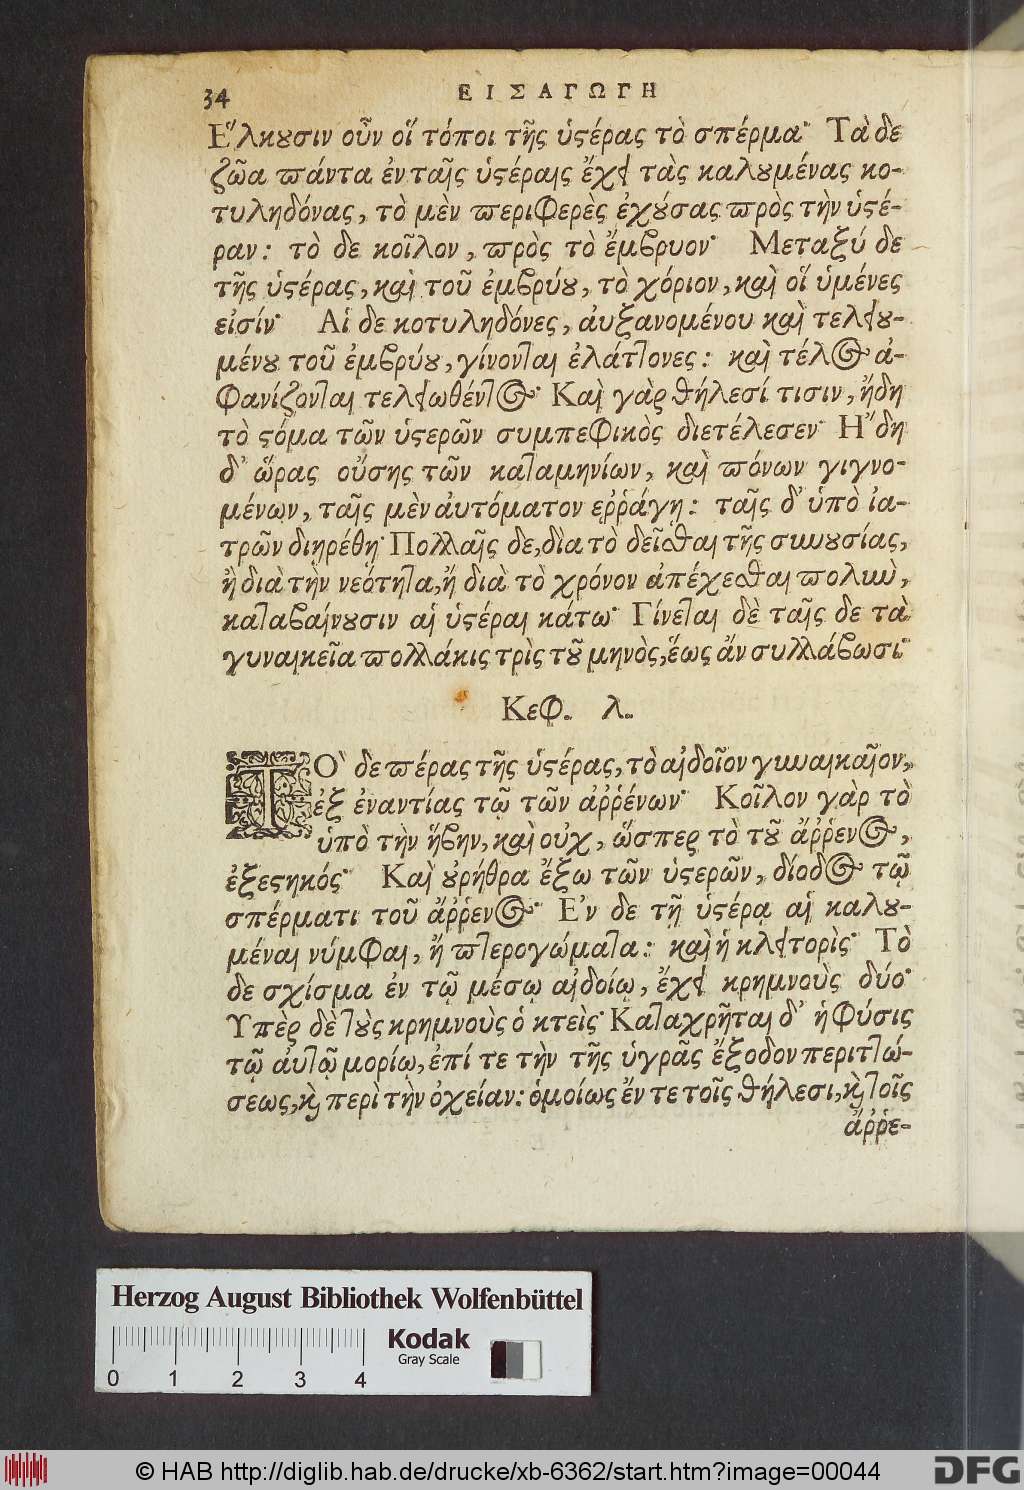 34 ΕΙΣΑΓΩΓΗ
Ἕλκουσιν οὖν οἵ τόποι τῆς ὑστέρας τὸ σπέρμα· Τὰ δε
ζῶα πάντα ἐν ταῖς ὑστέραις ἔχει τὰς καλουμένας κο-
τυληδόνας, τὸ μὲν περιφερὲς ἐχούσας πρὸς τὴν ὑστέ-
ραν: τὸ δε κοῖλον, πρὸς τὸ ἔμβρυον· Μεταξύ δε
τῆς ὑστέρας, καὶ τοῦ ἐμβρύου, τὸ χόριον, καὶ οἵ ὑμένες
εἰσίν· Αἱ δε κοτυληδόνες, ἀυξανομένου καὶ τελειου-
μένου τοῦ ἐμβρύου, γίνονται ἐλάττονες: καὶ τέλος ἀ-
φανίζονται τελειωθέντος· Καὶ γὰρ θήλεσί τισιν, ἤδη
τὸ στόμα τῶν ὑστερῶν συμπεφικὸς διετέλεσεν· Ἤδη
δ' ὥρας οὔσης τῶν καταμηνίων, καὶ πόνων γιγνο-
μένων, ταῖς μὲν ἀυτόματον εῤῥάγη: ταῖς δ' ὑπὸ ἰα-
τρῶν διηρέθη· Πολλαῖς δε, δὶα τὸ δεῖσθαι τῆς συνουσίας,
ἢ διὰ τὴν νεότητα, ἤ διὰ τὸ χρόνον ἀπέχεσθαι πολὺν,
καταβαίνουσιν αἱ ὑστέραι κάτω· Γίνεται δὲ ταῖς δε τὰ
γυναικεῖα πολλάκις τρὶς τοῦ μηνὸς, ἕως ἄν συλλάβωσι·
Κεφ. λ.
ΤῸ δε πέρας τῆς ὑστέρας, τὸ αἰδοῖον γυναικαῖον,
ἐξ ἐναντίας τῷ τῶν ἀῤῥένων· Κοῖλον γὰρ τὸ
ὑπὸ τὴν ἥβην, καὶ οὐχ, ὥσπερ τὸ τοῦ ἄῤῥενος,
ἐξεστηκός· Καὶ οὐρήθρα ἔξω τῶν ὑστερῶν, δίοδος τῷ
σπέρματι τοῦ ἄῤῥενος· Ἐν δε τῇ ὑστέρᾳ αἱ καλου-
μέναι νύμφαι, ἤ πτερογώματα: καὶ ἡ κλειτορὶς· Τὸ
δε σχίσμα ἐν τῷ μέσῳ αἰδοίῳ, ἔχει κρημνοὺς δύο·
Υπὲρ δὲ τοὺς κρημνοὺς ὁ κτεὶς· Καταχρῆται δ' ἡ φύσις
τῷ ἀυτῷ μορίῳ, ἐπί τε τὴν τῆς ὑγρᾶς ἔξοδον περιττώ-
σεως, καὶ περὶ τὴν ὀχείαν: ὁμοίως ἔν τε τοῖς θήλεσι, καὶ τοῖς
ἄῤῥε-
Herzog August Bibliothek Wolfenbüttel
Kodak
Gray Scale
0 1 2 3 4
© HAB http://diglib.hab.de/drucke/xb-6362/start.htm?image=00044
DFG